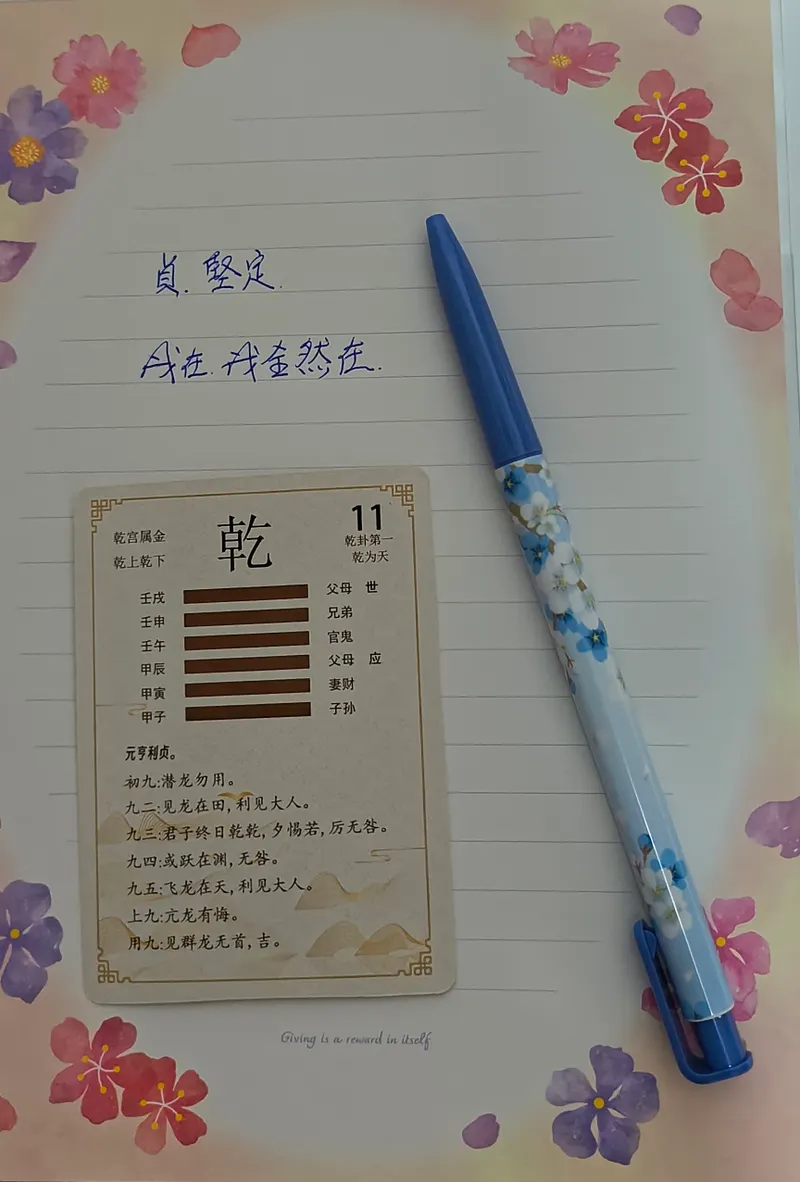 貞.堅定.
我在.我全然在.
乾宫属金
乾上乾下
乾
11
乾卦第一
乾为天
壬戌 父母 世
壬申 兄弟
壬午 官鬼
甲辰 父母 应
甲寅 妻财
甲子 子孙
元亨利贞。
初九:潜龙勿用。
九二:见龙在田,利见大人。
九三:君子终日乾乾,夕惕若,厉无咎。
九四:或跃在渊,无咎。
九五:飞龙在天,利见大人。
上九:亢龙有悔。
用九:见群龙无首,吉。
Giving is a reward in itself